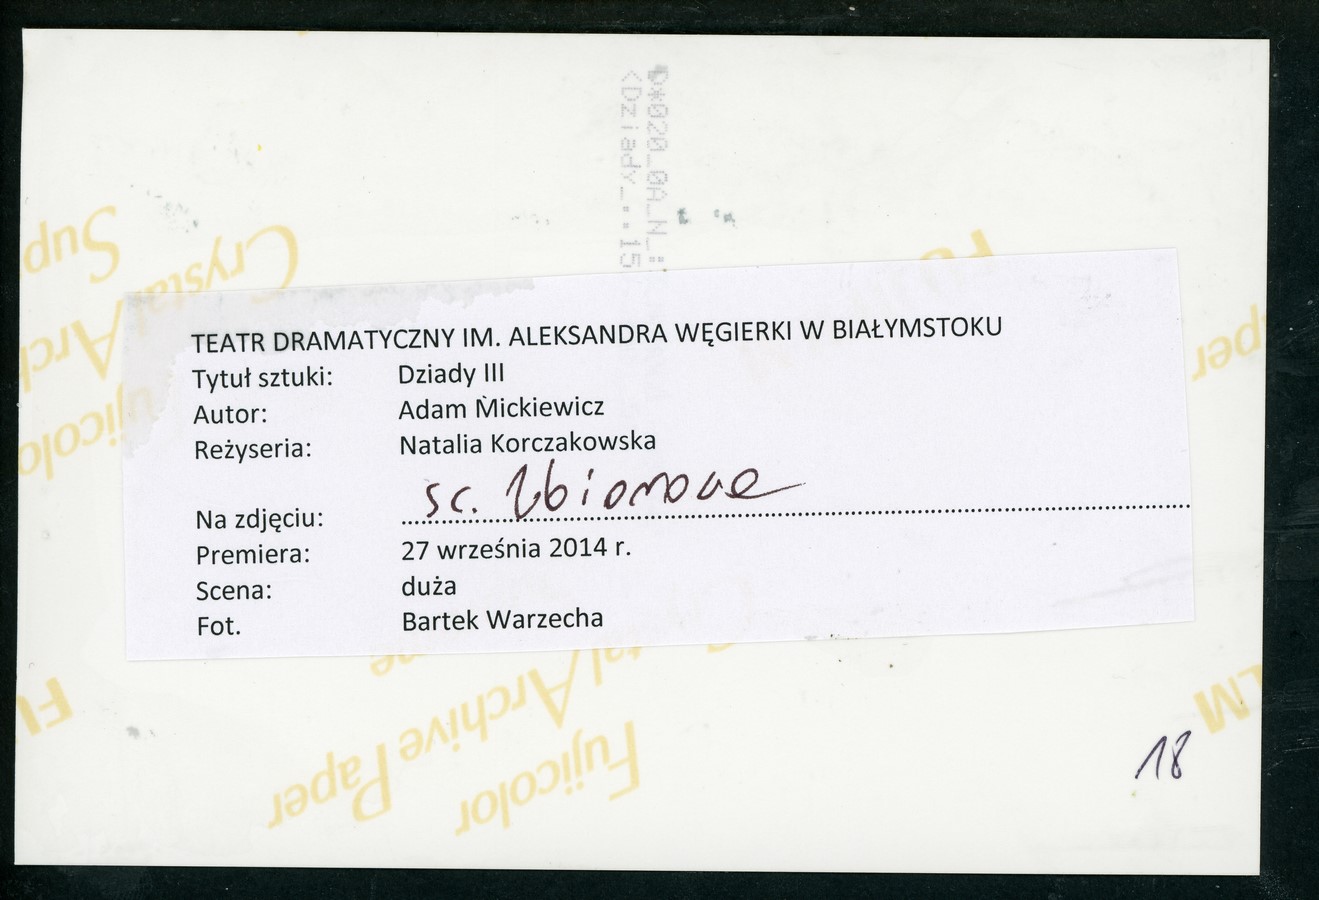 P*020_0A_N_:
<Dziady_::15
Crystal Arch
Sup
Fujicolo
aper
TEATR DRAMATYCZNY IM. ALEKSANDRA WĘGIERKI W BIAŁYMSTOKU
Tytuł sztuki: Dziady III
Autor: Adam Mickiewicz
Reżyseria: Natalia Korczakowska
Na zdjęciu: sc. Zbiorowe
Premiera: 27 września 2014 r.
Scena: duża
Fot. Bartek Warzecha
Fujicolor
Crystal Archive Paper
18